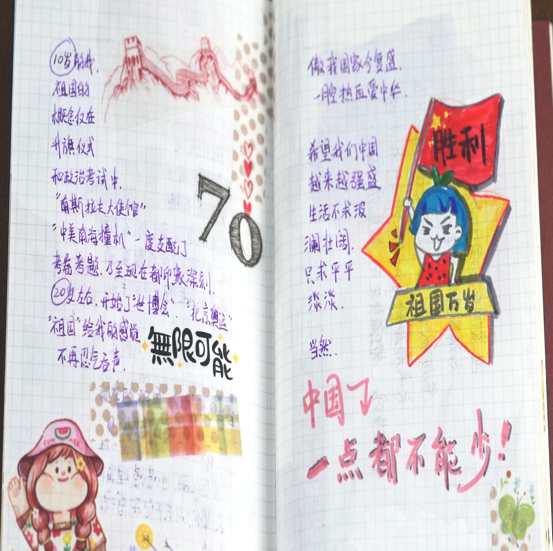 10岁的我,
祖国的
概念仅在
升旗仪式
和政治考试中.
"南斯拉夫大使馆"
"中美南海撞机"一度支配了
考卷考题,乃至现在都印象深刻.
20岁左右,开始了"世博会","北京奥运"
"祖国"给我的感觉
不再忍气吞声.
70
無限可能
傲我国家今复盛
一腔热血爱中华.
希望我们中国
越来越强盛
生活不求波
澜壮阔.
只求平平
淡淡.
当然.
胜利
祖国万岁
中国了
一点都不能少!